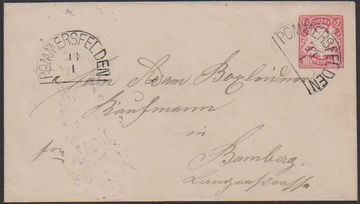 POMMERSFELDEN
11
1
POMMERSFELDEN
Herrn Adam
Kaufmann
in
Bamberg.
Langenstrasse